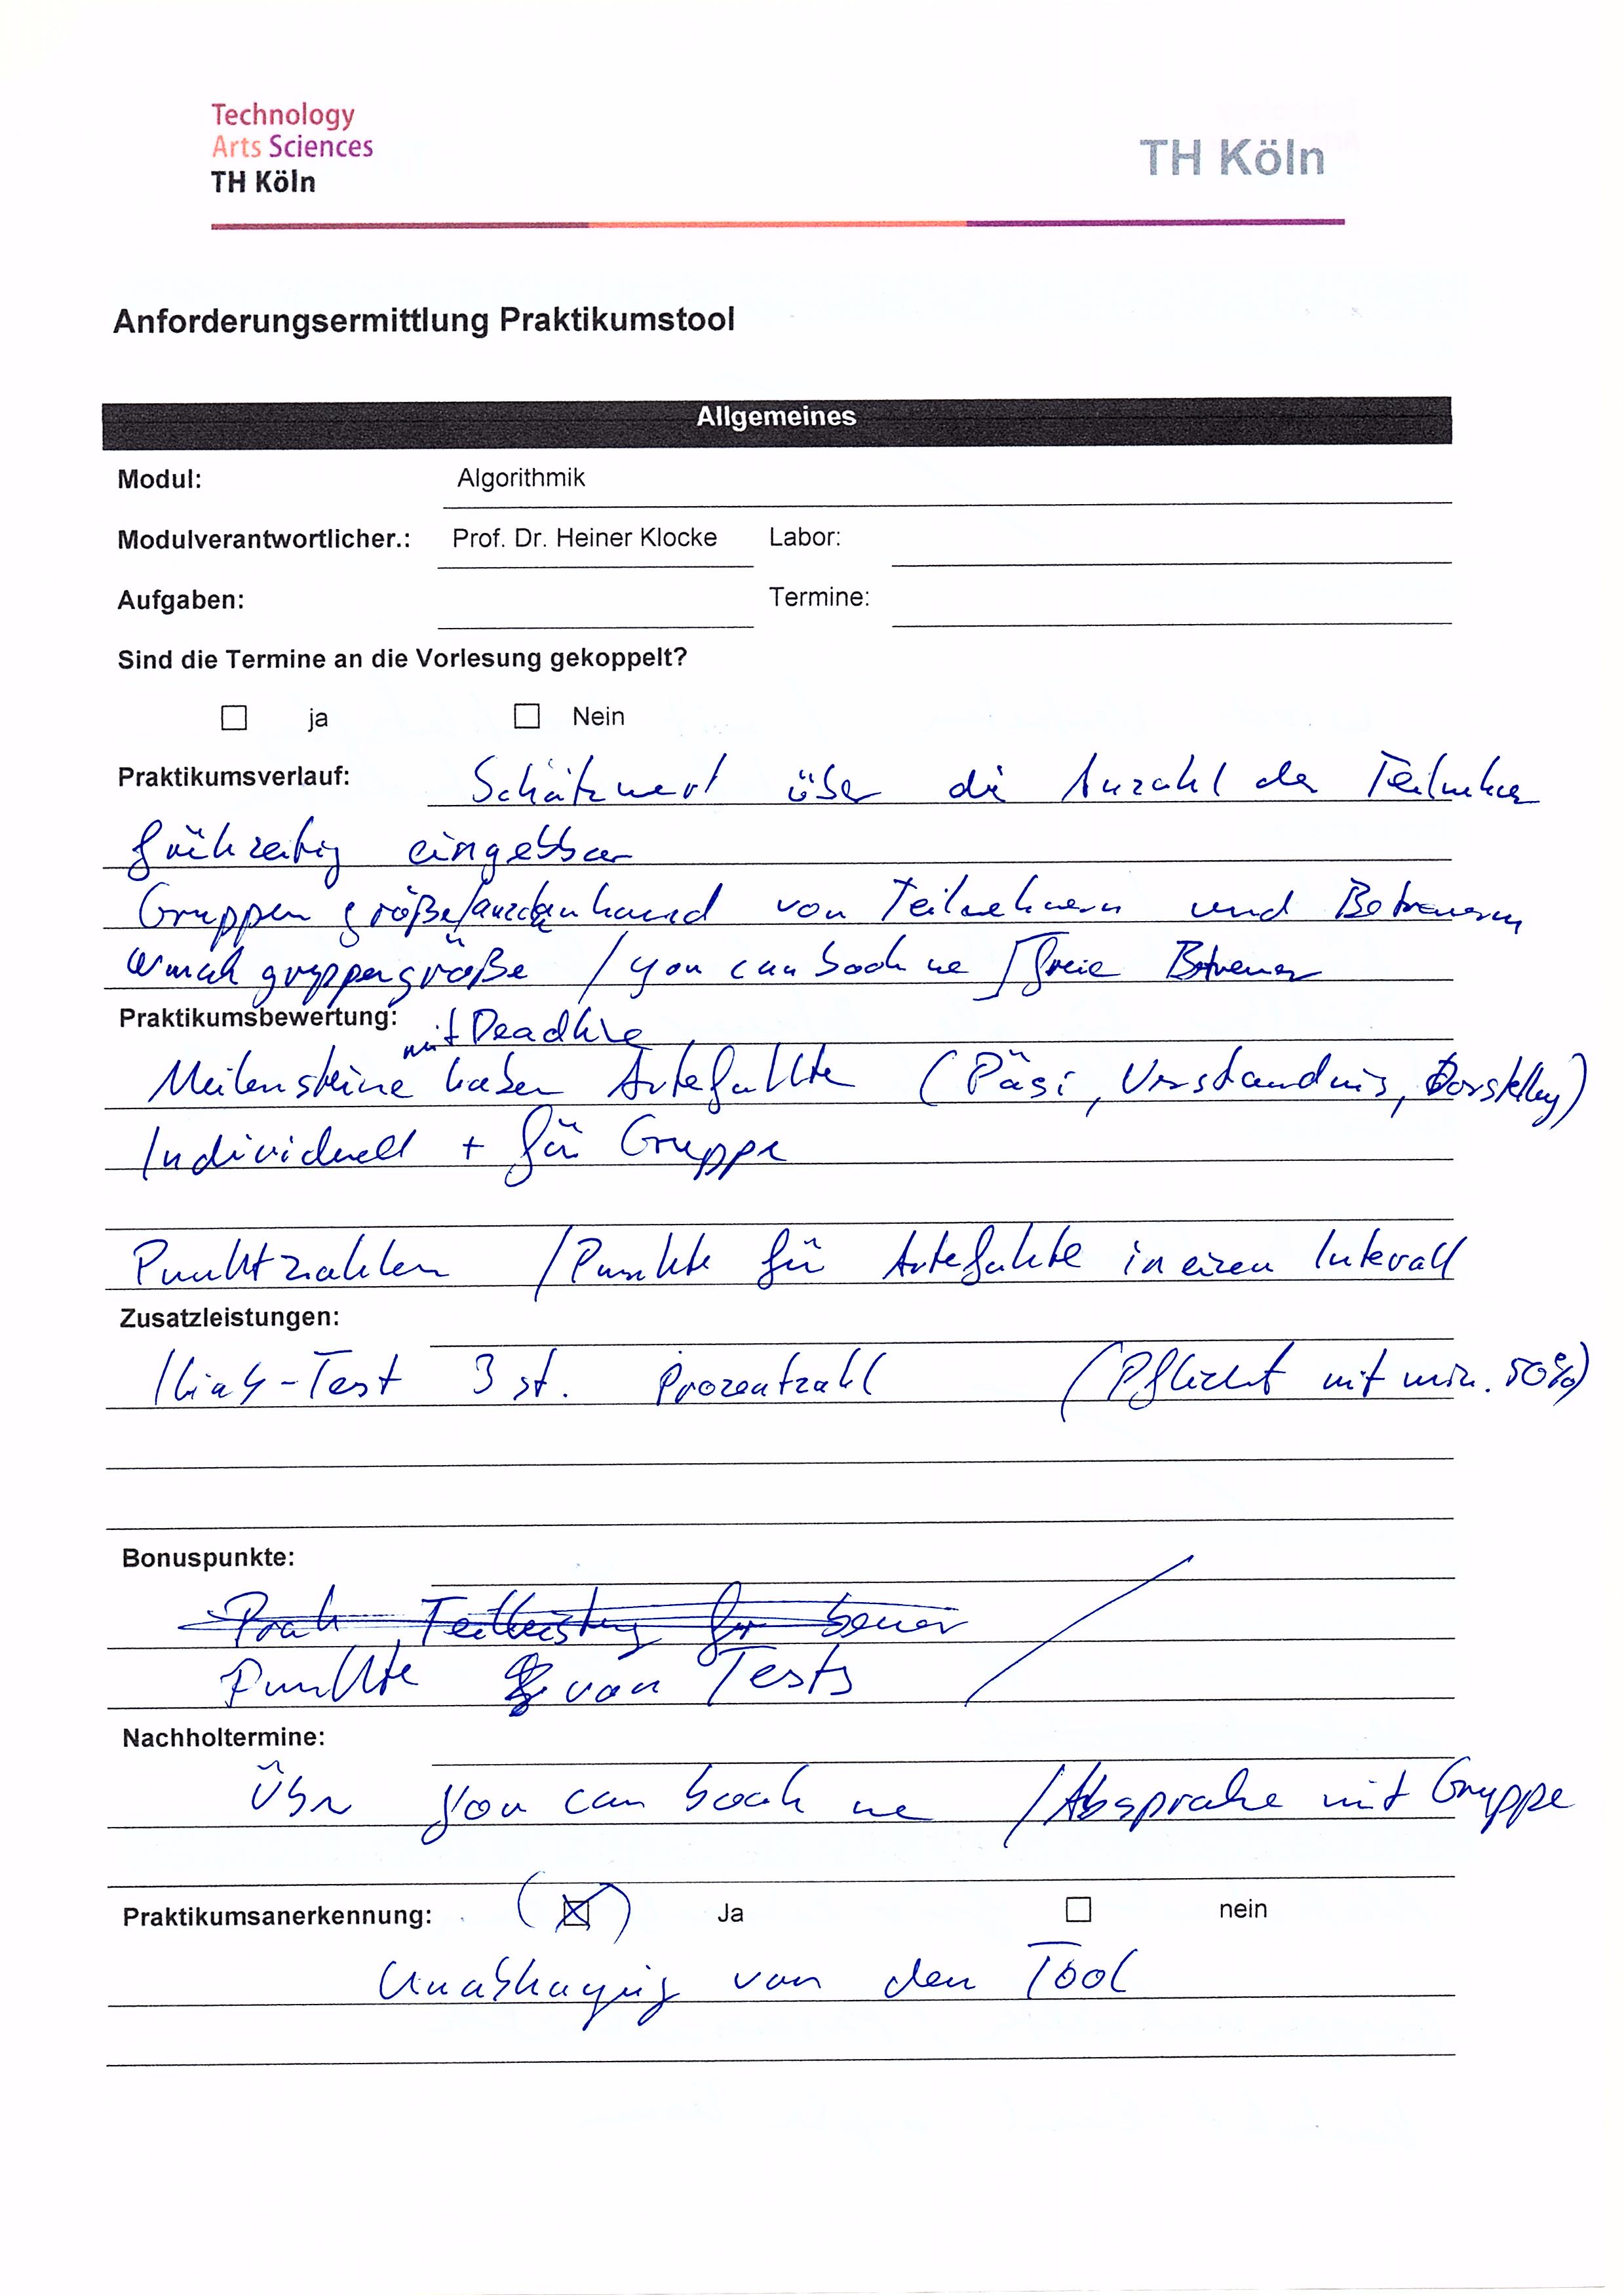 Technology
Arts Sciences
TH Köln
TH Köln
Anforderungsermittlung Praktikumstool
Allgemeines
Modul: Algorithmik
Modulverantwortlicher.: Prof. Dr. Heiner Klocke Labor:
Aufgaben: Termine:
Sind die Termine an die Vorlesung gekoppelt?
ja Nein
Praktikumsverlauf: Schätzwert über die Anzahl der Teilnehmer
frühzeitig eingebbar
Gruppengröße/ von Teilnehmern und Betreuern
gruppengröße / you can book me / freie Betreuer
Praktikumsbewertung: mit Deadline
Meilensteine haben Artefakte (Präsi, Verständnis, Vorstellung)
Individuell + für Gruppe
Punktzahlen / Punkte für Artefakte in einen Intervall
Zusatzleistungen:
Ilias-Test 3 st. Prozentzahl (Pflicht mit min. 50%)
Bonuspunkte:
Prak Teilleistung
Punkte von Tests
Nachholtermine:
Über you can book me / Absprache mit Gruppe
Praktikumsanerkennung: (☒) Ja nein
Unabhängig von den Tool